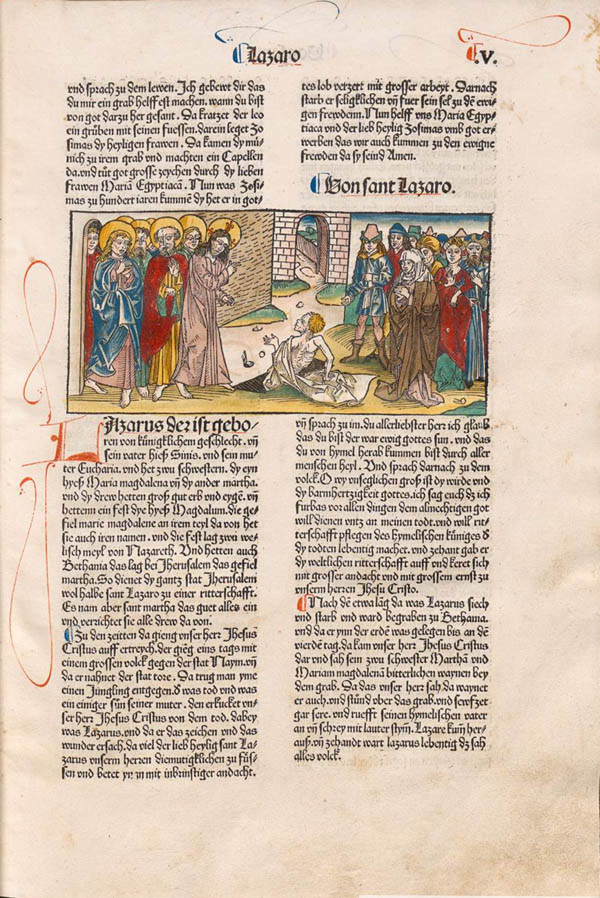 Lazaro
.V.
vnd sprach zu dem lewen. Ich gebewt dir das
du mir ein grab helffest machen. wann du bist
von got darzu her gesant. Da kratzet der leo
ein grüben mit seinen fuessen. darein leget Zo
simas dy heyligen frawen. Da kamen dy mü
nich zu irem grab vnd machten ein Capellen
da. vnd tüt got grosse zeychen durch dy lieben
frawen Mariā Egyptiacā. Nun was Zosi
mas zu hundert iaren kummē dy het er in got
tes lob verzert mit grosser arbeyt. Darnach
starb er seligklichen vn̄ fuer sein sel zu dē ewi
gen frewdenn. Nun helff vns Maria Egyp
tiaca vnd der lieb heylig Zosimas vmb got er
werben das wir auch kummen zu den ewigē
frewden da sy seind Amen.
Von sant Lazaro.
LAzarus der ist gebo-
ren von künigklichem geschlecht. vn̄
sein vater hieß Sinis. vnd sein mu
ter Eucharia. vnd het zwu schwestern. dy eyn
hyeß Maria magdalena vn̄ dy ander martha.
vnd dy drew hetten groß gut erb vnd eygē. vn̄
hettenn ein fest dye hyeß Magdalum. die ge
fiel marie magdalene an irem teyl da von het
sie auch iren namen. vnd die fest lag zwu we
lisch meyl von Nazareth. Vnd hetten auch
Bethania das lag bei Jherusalem das gefiel
martha. So dienet dy gantz stat Jherusalem
wol halbe sant Lazaro zu einer ritterschafft.
Es nam aber sant martha das guet alles ein
vnd verrichtet sie alle drew da von.
Zu den zeitten da gieng vnser herr Jhesus
Cristus auff ertreych. der gieg eins tags mit
einem grossen volck gegen der stat Naym. vn̄
da er nahnet der stat tore. Da trug man yme
einen Jüngling entgegen. ď was tod vnd was
ein einiger sün seiner muter. den erkucket vn
ser herr Jhesus Cristus von dem tod. dabey
was Lazarus. vnd da er das zeichen vnd das
wunder ersach. da viel der lieb heylig sant La
zarus vnserm herren diemutigklichen zu füs
sen vnd betet yn an mit inbrinstiger andacht.
vn̄ sprach zu im. du allerliebster herr ich glaub
das du bist der war ewig gottes sun. vnd das
du von hymel herab kummen bist durch aller
menschen heyl. Vnd sprach darnach zu dem
volck. O wy vnseglichen groß ist dy wirde vnd
dy barmhertzigkeit gottes. ich sag euch dz ich
furbas vor allen dingen dem almechtigen got
will dienen vntz an meinen todt. vnd will rit
terschafft pflegen des hymelischen küniges ď
dy todten lebentig machet. vnd zehant gab er
dy weltlichen ritterschafft auff vnd keret sich
mit grosser andacht vnd mit grossem ernst zu
vnserm herren Jhesu Cristo.
Nach dē etwa lāg da was Lazarus siech
vnd starb vnd ward begraben zu Bethania.
vnd da er ynn der erdē was gelegen bis an dē
vierdē tag. da kam vnser herr Jhesus Cristus
dar vnd sah sein zwu schwester Marthā vnd
Mariam magdalenā bitterlichen waynen bey
dem grab. Da das vnser herr sah. da waynet
er auch. vnd stünd vber das grab. vnd seufzet
gar sere. vnd ruefft seinen hymelischen vater
an vn̄ schrey mit lauter stym̄. Lazare kum̄ her
auß. vn̄ zehandt wart lazarus lebentig dz sah
alles volck.